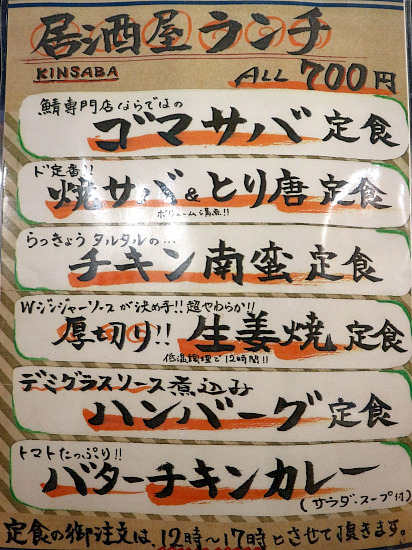 居酒屋ランチ
KINSABA
ALL 700円
鯖専門店ならではの
ゴマサバ定食
ド定番!!
焼サバ&とり唐定食
ボリューム満点!!
らっきょうタルタルの…
チキン南蛮定食
Wジンジャーソースが決め手!!超やわらか!!
厚切り!!生姜焼定食
低温調理で12時間!!
デミグラスソース煮込み
ハンバーグ定食
トマトたっぷり!!
バターチキンカレー
(サラダ・スープ付)
定食の御注文は、12時〜17時とさせて頂きます。